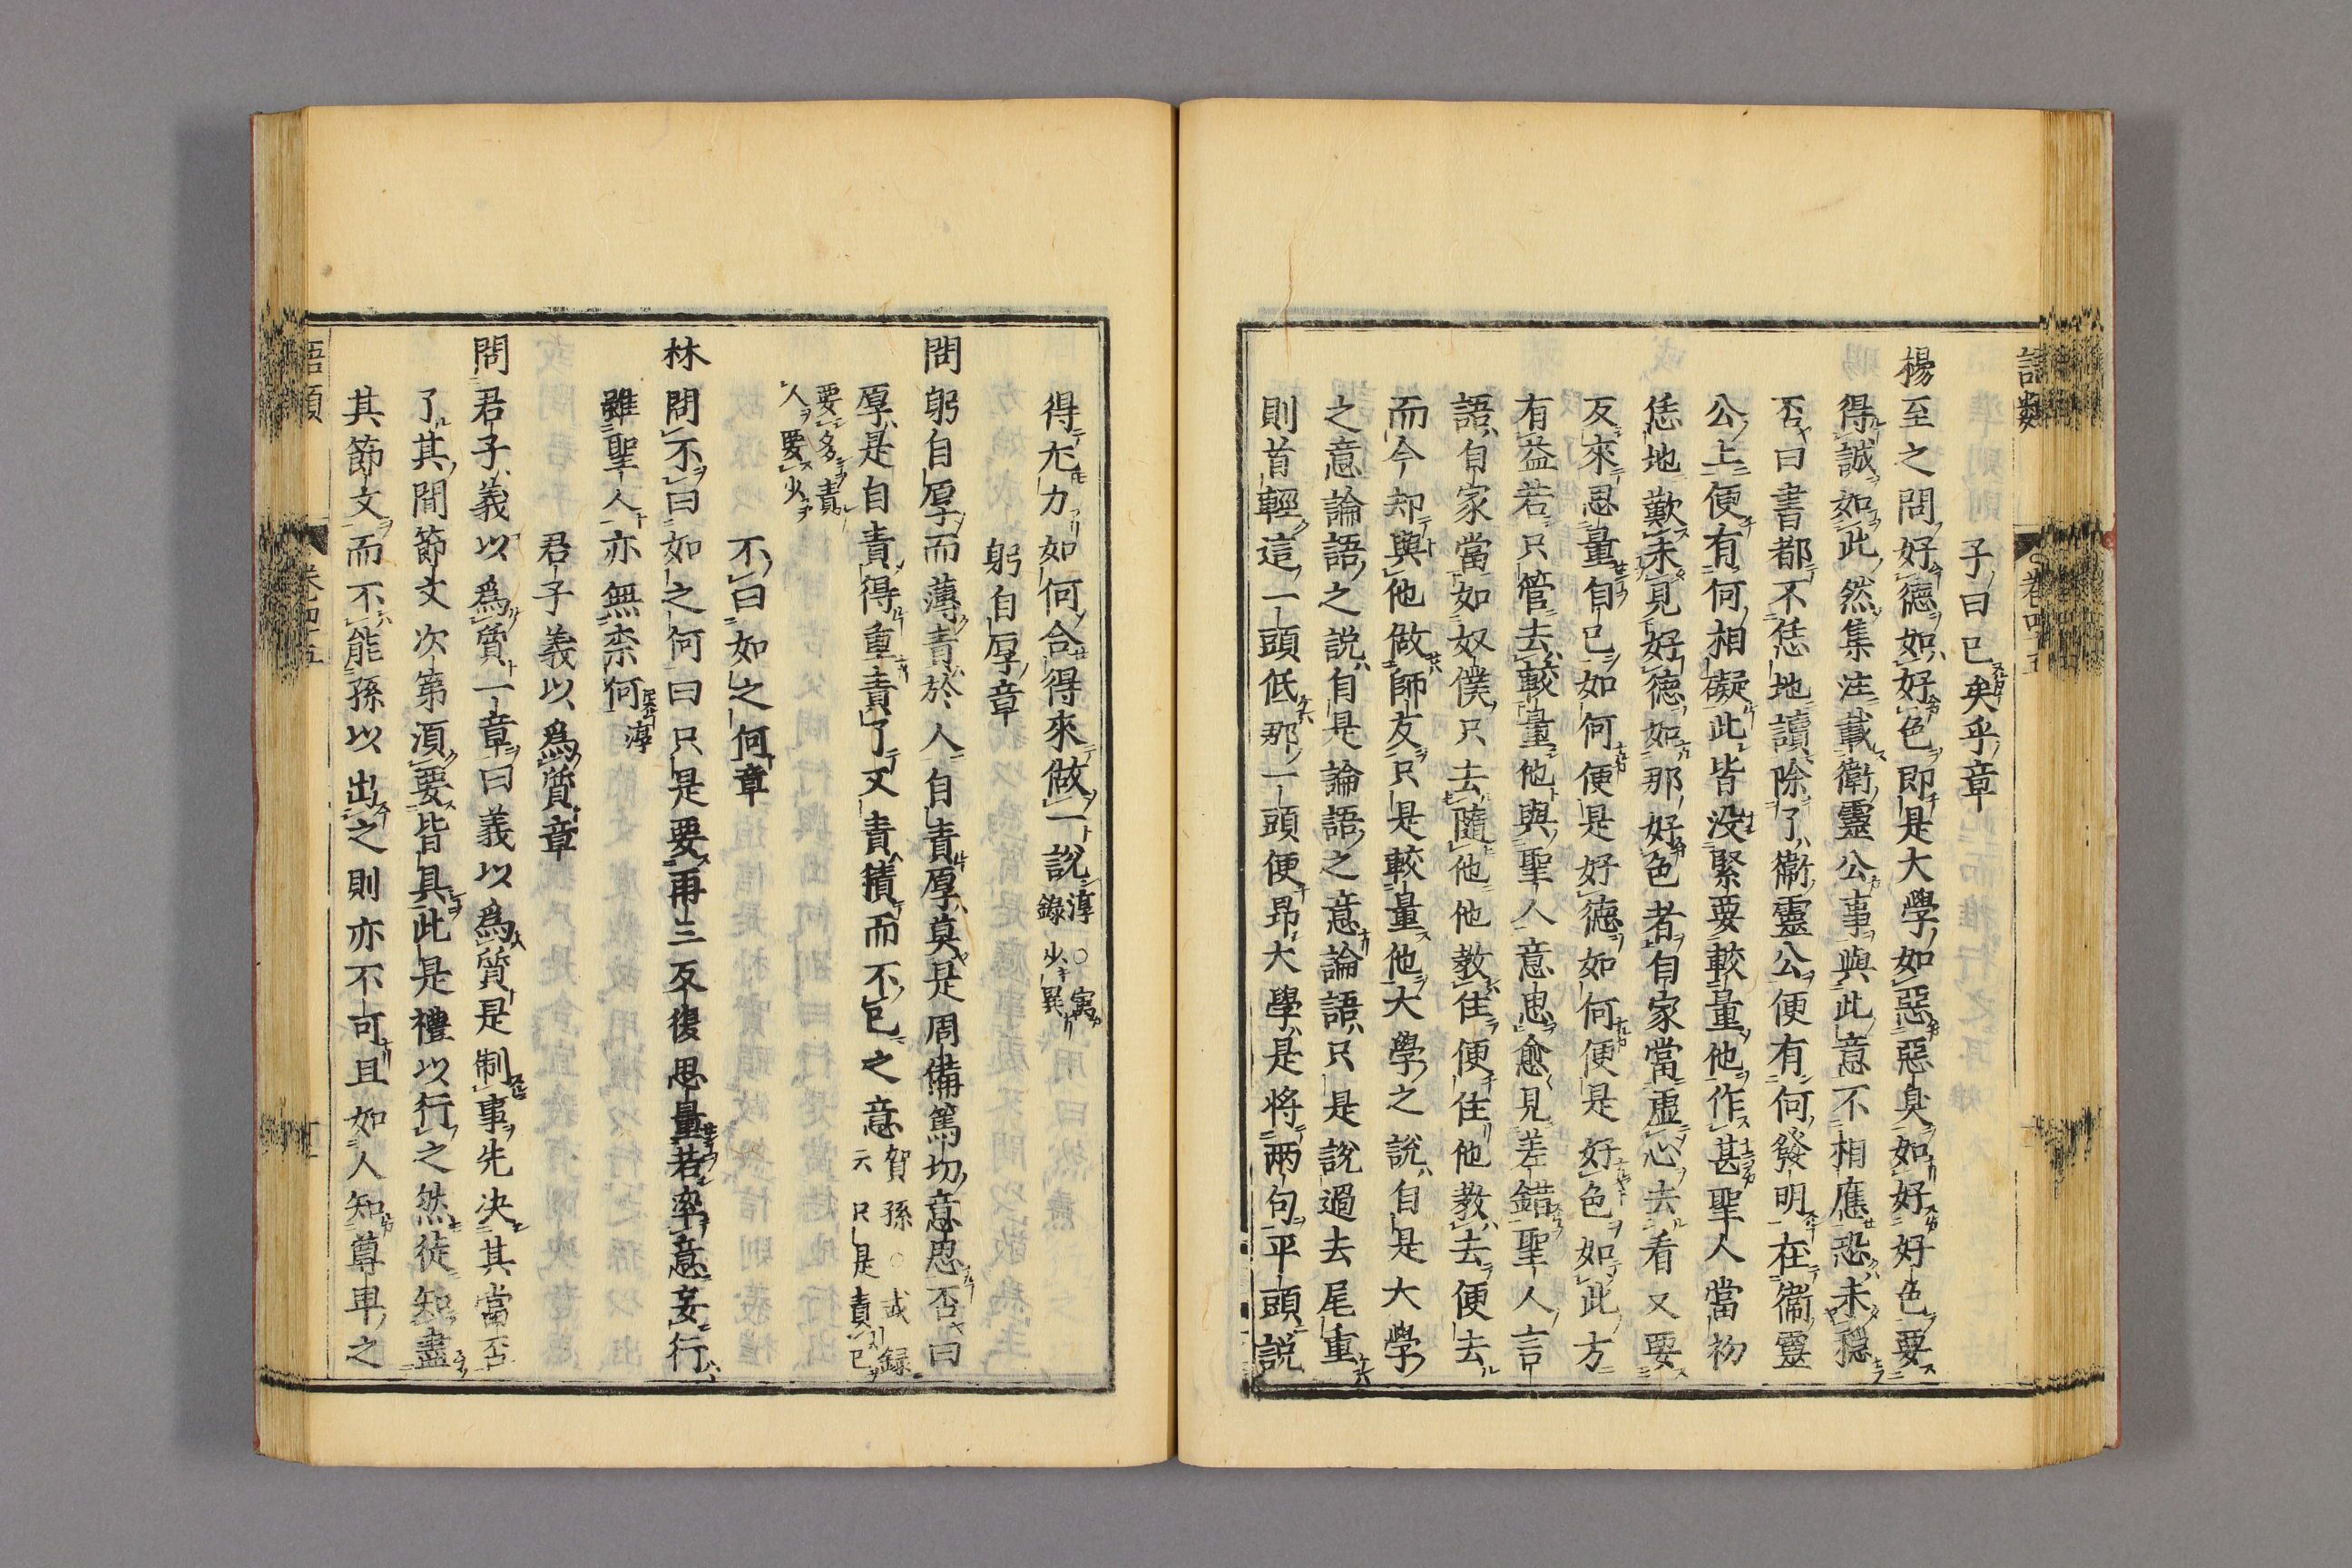 語類 卷四十五
子曰已矣乎章
楊至之問好德如好色即是大學如惡惡臭如好好色要
得誠如此然集注載衞靈公事與此意不相應恐未穩
否曰書都不恁地讀除了衞靈公便有何發明在衞靈
公上便有何相礙此皆没緊要較量他作甚聖人當初
恁地歎未見好德如那好色者自家當虛心去看又要
反來思量自己如何便是好德如何便是好色如此方
有益若只管去較量他與聖人意思愈見差錯聖人言
語自家當如奴僕只去隨他他教住便住他教去便去
而今却與他做師友只是較量他大學之說自是大學
之意論語之說自是論語之意論語只是說過去尾重
則首輕這一頭低那一頭便昻大學是將兩句平頭說
得尤力如何合得來做一說淳○㝢錄少異
躬自厚章
問躬自厚而薄責於人自責厚莫是周備篤切意思否曰
厚是自責得重責了又責積而不已之意賀孫○或録云只是責己
要多責人要少
不曰如之何章
林問不曰如之何曰只是要再三反復思量若率意妄行
雖聖人亦無柰何淳
君子義以爲質章
問君子義以爲質一章曰義以爲質是制事先决其當否
了其間節文次第須要皆具此是禮以行之然徒知盡
其節文而不能孫以出之則亦不可且如人知尊卑之
語類 卷四十五